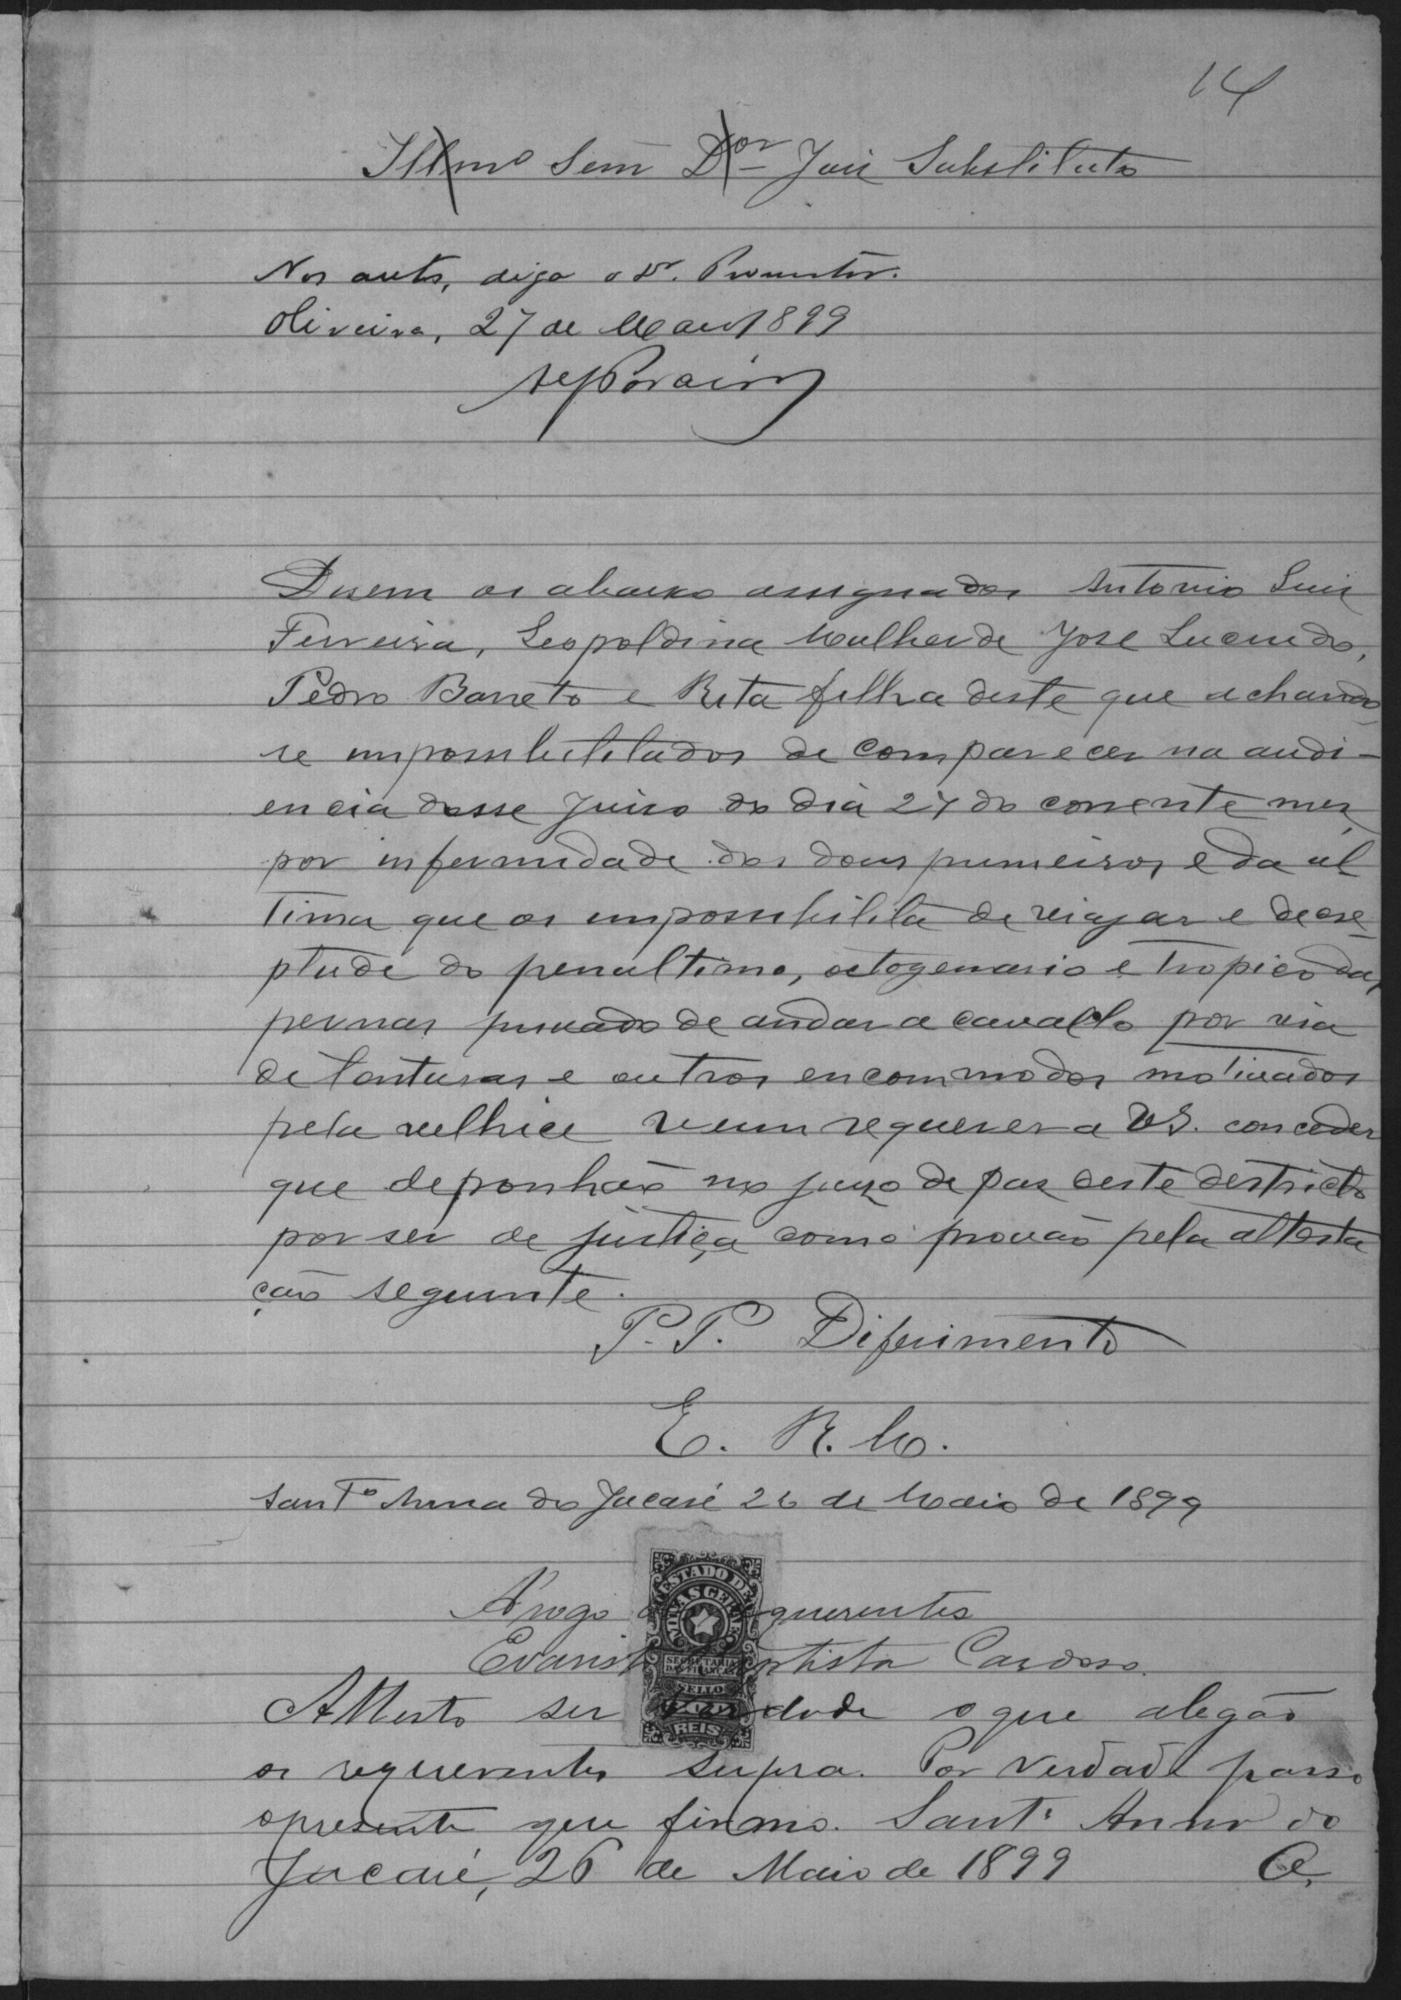 14
Illmo Senr Dor Juiz Substituto
Nos autos, diga o Dr. Promotor.
Oliveira, 27 de Maio 1899
Disem os abaixo assignados Antonio Luiz
Ferreira, Leopoldina Mulher de José Lucindo,
Pedro Barreto e Rita filha deste que achando
se impossibilitados de comparecer na audi-
encia desse Juizo do dia 27 do corrente mez
por infermidade dos dous primeiros e da ul
tima que os impossibilita de viajar e de
do penultimo, octogenario e tropico das
pernas privado de andar a cavallo por via
de tonturas e outros encommodos motivados
pela velhice vem requerer a VS. conceder
que deponhão no juizo de paz deste destricto
por ser de justiça como provão pela attesta
ção seguinte.
P. P. Diferimento
E. R. M.
Santo Anna do Jacaré 26 de Maio de 1899
Arogo querentes
Evaristo Baptista Cardoso.
ESTADO DE
MINAS GERAES
SECRETARIA
DAS FINANÇAS
SELLO
REIS
Attesto ser verdade o que alegão
os requerentes supra. Por verdade passo
o presente que firmo. Sant' Anna do
Jacaré, 26 de Maio de 1899